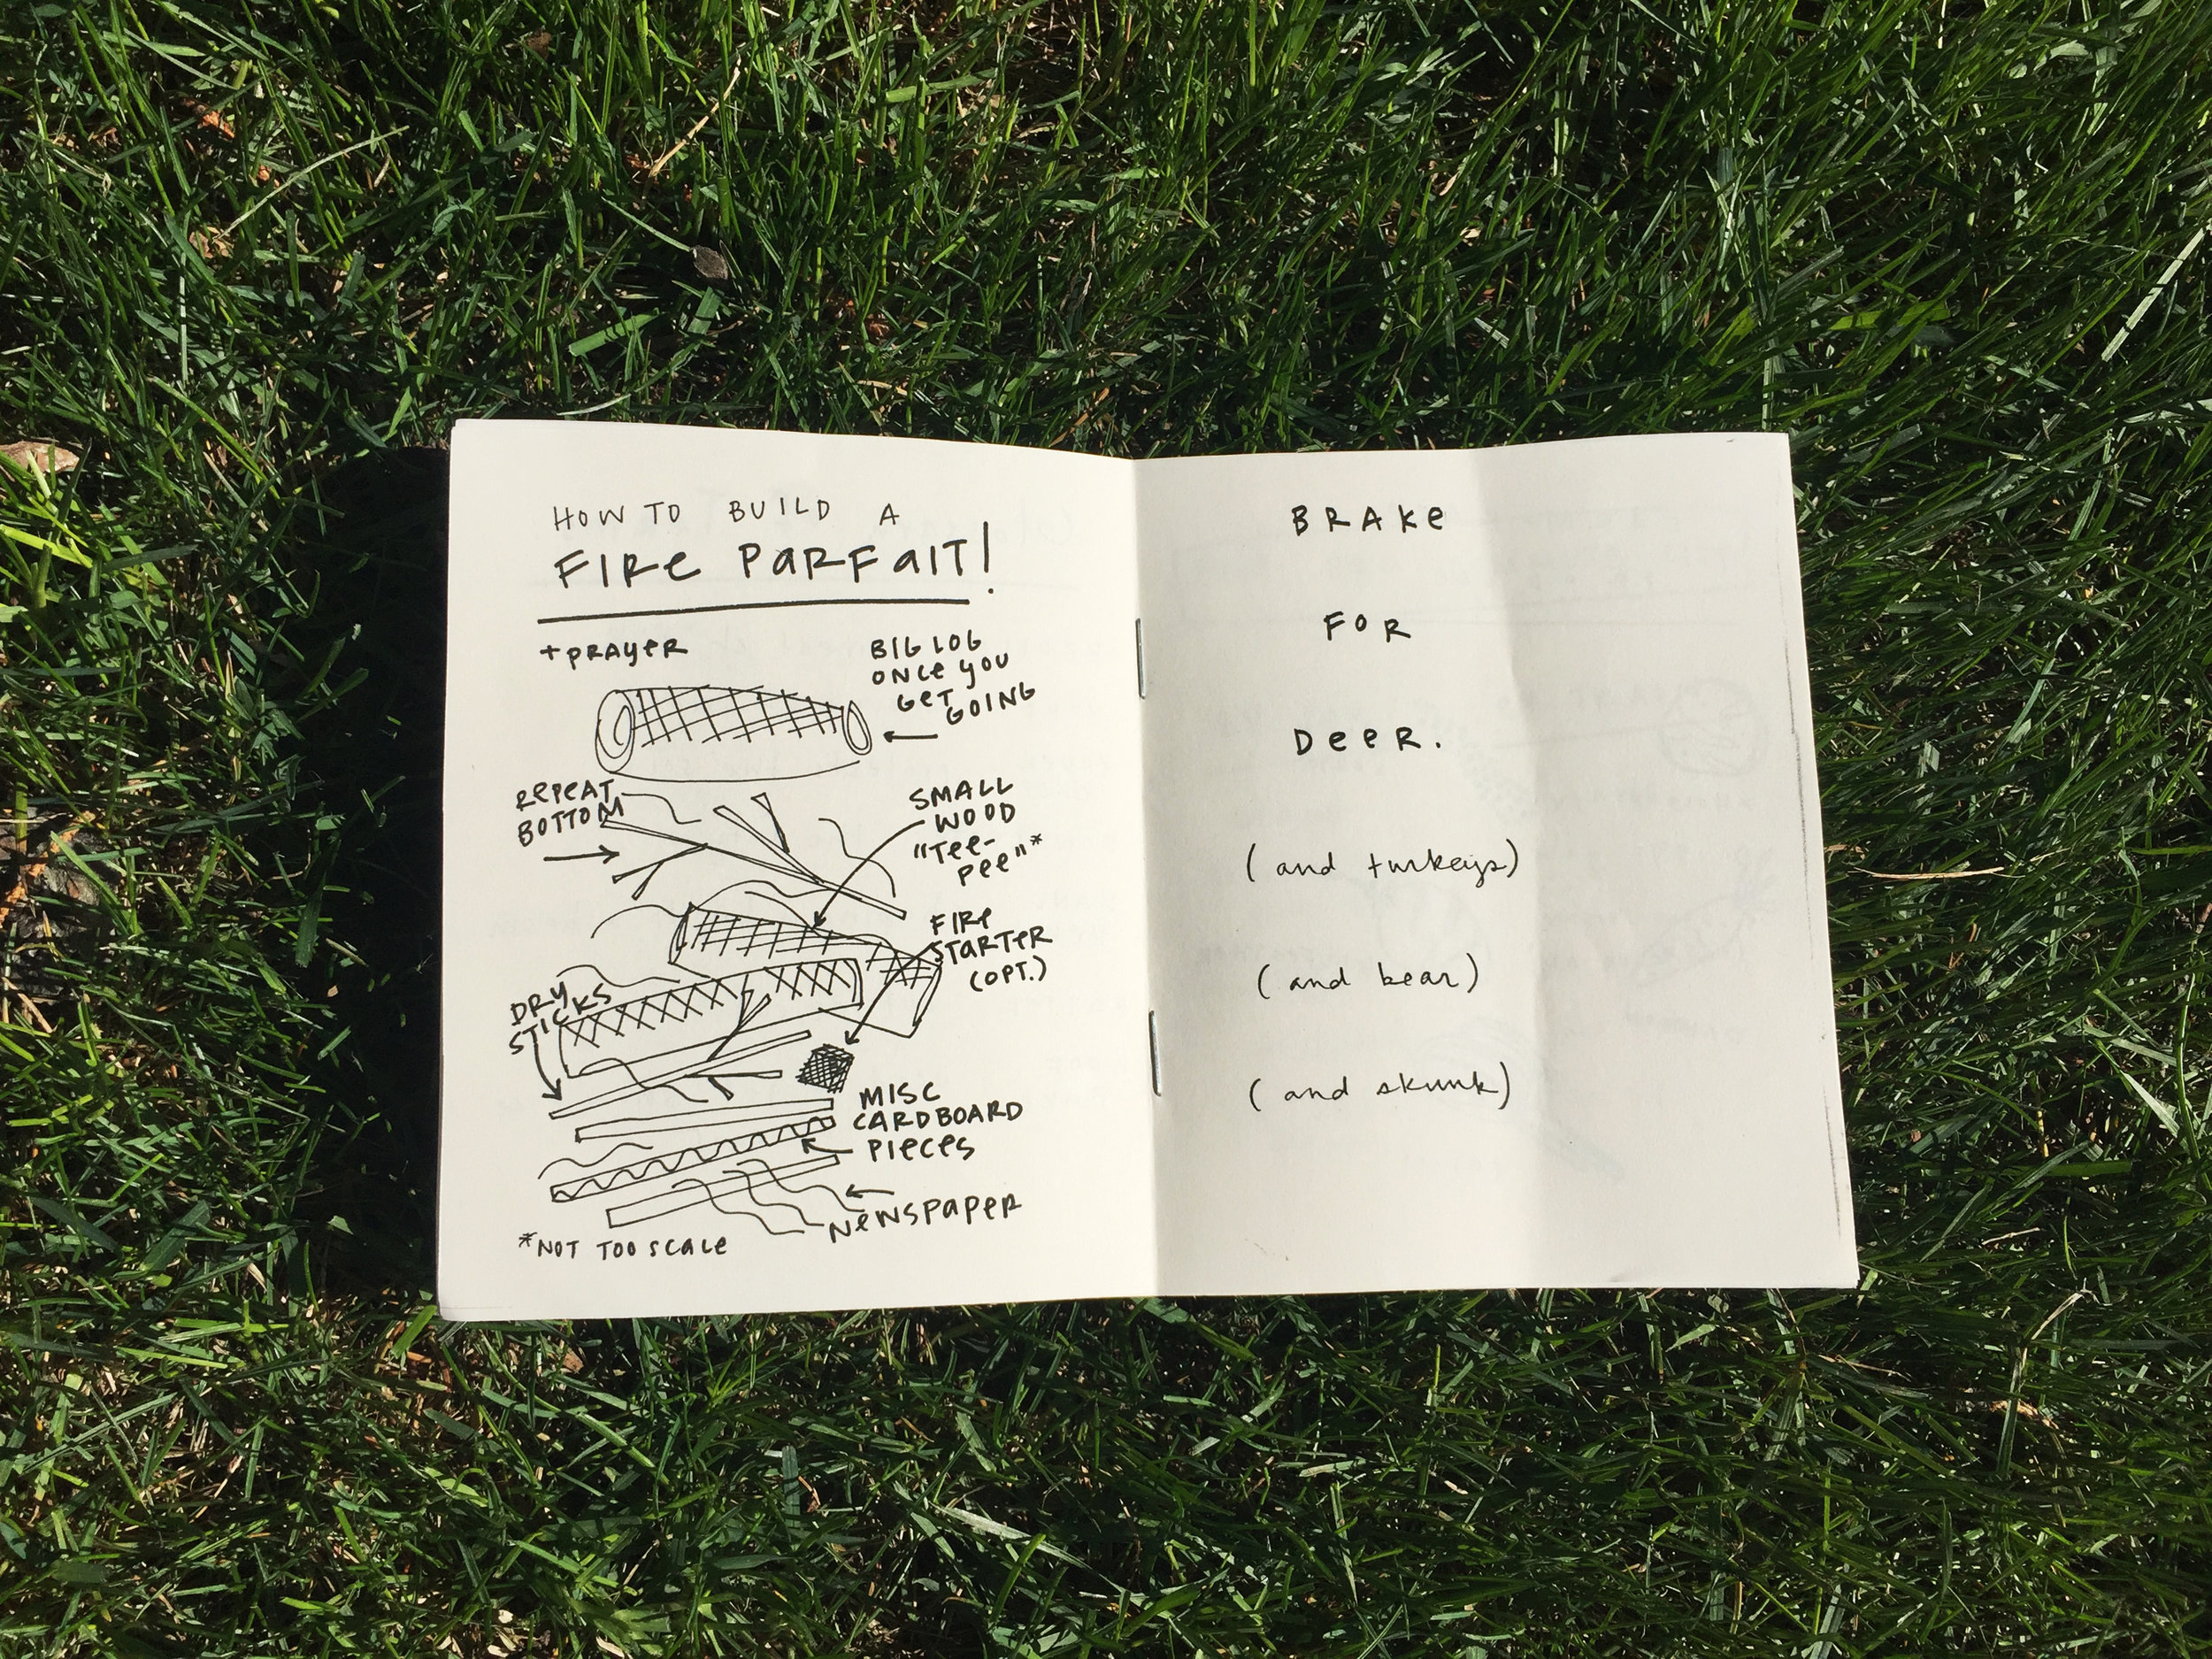 HOW TO BUILD A
FIRE PARFAIT!
+ PRAYER
BIG LOG
ONCE YOU
GET
GOING
REPEAT
BOTTOM
SMALL
WOOD
"TEE-
PEE"*
FIRE
STARTER
(OPT.)
DRY
STICKS
MISC
CARDBOARD
PIECES
NEWSPAPER
*NOT TOO SCALE
BRAKE
FOR
DEER.
(and turkeys)
(and bear)
(and skunk)